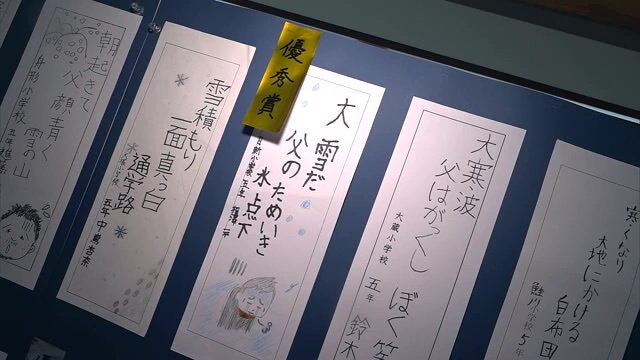 寒くなり
大地にかける
白布団
鮭川小学校 5年
大寒波
父はがっくし
ぼく笑
大蔵小学校 五年 鈴木
優秀賞
大雪だ
父のためいき
氷点下
五年
雪積もり
一面真っ白
通学路
小学校 五年 中島杏奈
朝起きて
父顔青く
雪の山
舟形小学校 五年